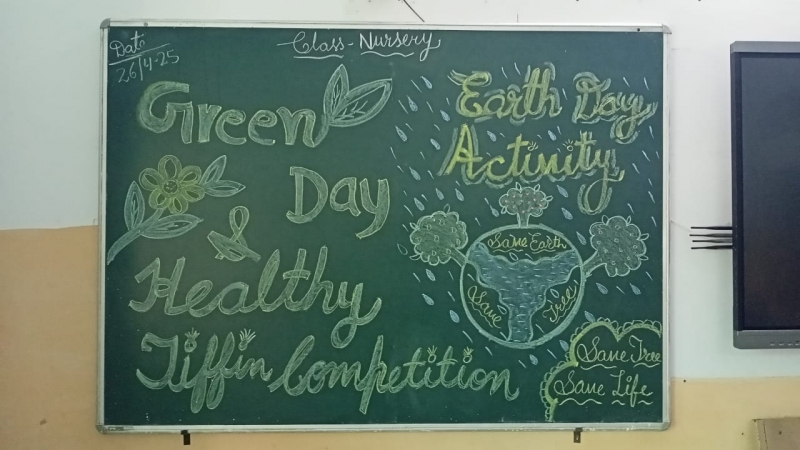 Date
26/4-25
Class-Nursery
Green
Day
&
Healthy
Tiffin Competition
Earth Day
Activity
Save Earth
Save Tree
Save Tree
Save Life